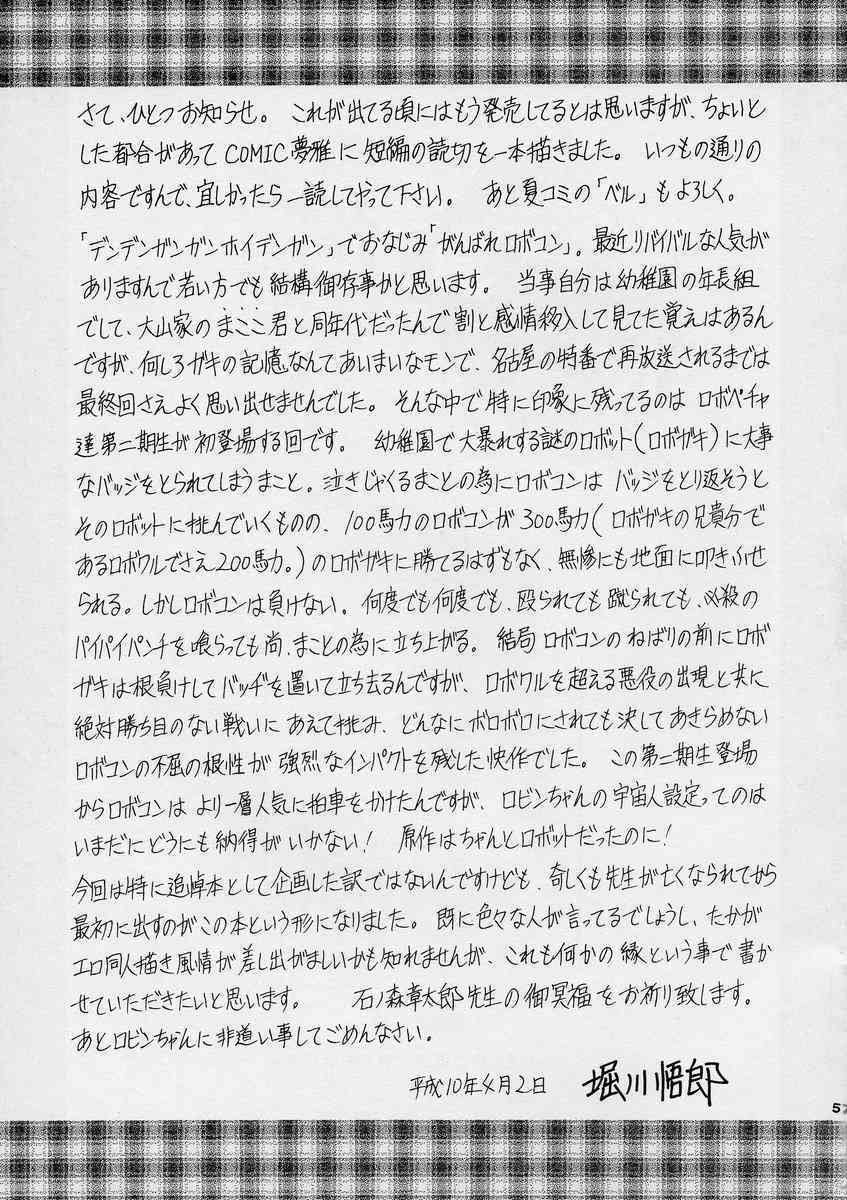 さて、ひとつお知らせ。 これが出てる頃にはもう発売してるとは思いますが、ちょいと
した都合があって COMIC夢雅に 短編の読切を一本描きました。 いつもの通りの
内容ですんで、宜しかったら一読してやって下さい。 あと夏コミの「ベル」もよろしく。
「デンデンガンガンホイデンガン」でおなじみ「がんばれロボコン」。最近リバイバルな人気が
ありますんで若い方でも結構御存事かと思います。 当事自分は幼稚園の年長組
でして、大山家のまここ君と同年代だったんで割と感情移入して見てた覚えはあるん
ですが、何しろガキの記憶なんてあいまいなモンで、名古屋の特番で再放送されるまでは
最終回さえよく思い出せませんでした。そんな中で特に印象に残ってるのは ロボペチャ
達第二期生が初登場する回です。 幼稚園で大暴れする謎のロボット(ロボガキ)に大事
なバッジをとられてしまうまこと。泣きじゃくるまことの為にロボコンは バッジをとり返そうと
そのロボットに挑んでいくものの、100馬力のロボコンが300馬力(ロボガキの兄貴分で
あるロボワルでさえ200馬力。)のロボガキに勝てるはずもなく、無惨にも地面に叩きふせ
られる。しかしロボコンは負けない。何度でも何度でも、殴られても蹴られても、必殺の
パイパイパンチを喰らっても尚、まことの為に立ち上がる。結局ロボコンのねばりの前にロボ
ガキは根負けしてバッヂを置いて立ち去るんですが、ロボワルを超える悪役の出現と共に
絶対勝ち目のない戦いにあえて挑み、どんなにボロボロにされても決してあきらめない
ロボコンの不屈の根性が 強烈なインパクトを残した快作でした。 この第二期生登場
からロボコンは より一層人気に拍車をかけたんですが、ロビンちゃんの宇宙人設定ってのは
いまだにどうにも納得がいかない! 原作はちゃんとロボットだったのに!
今回は特に追悼本として企画した訳ではないんですけども、奇しくも先生が亡くなられてから
最初に出すのがこの本という形になりました。既に色々な人が言ってるでしょうし、たかが
エロ同人描き風情が差し出がましいかも知れませんが、これも何かの縁という事で書か
せていただきたいと思います。 石ノ森章太郎先生の御冥福をお祈り致します。
あとロビンちゃんに非道い事してごめんなさい。
平成10年4月2日 堀川悟郎
57